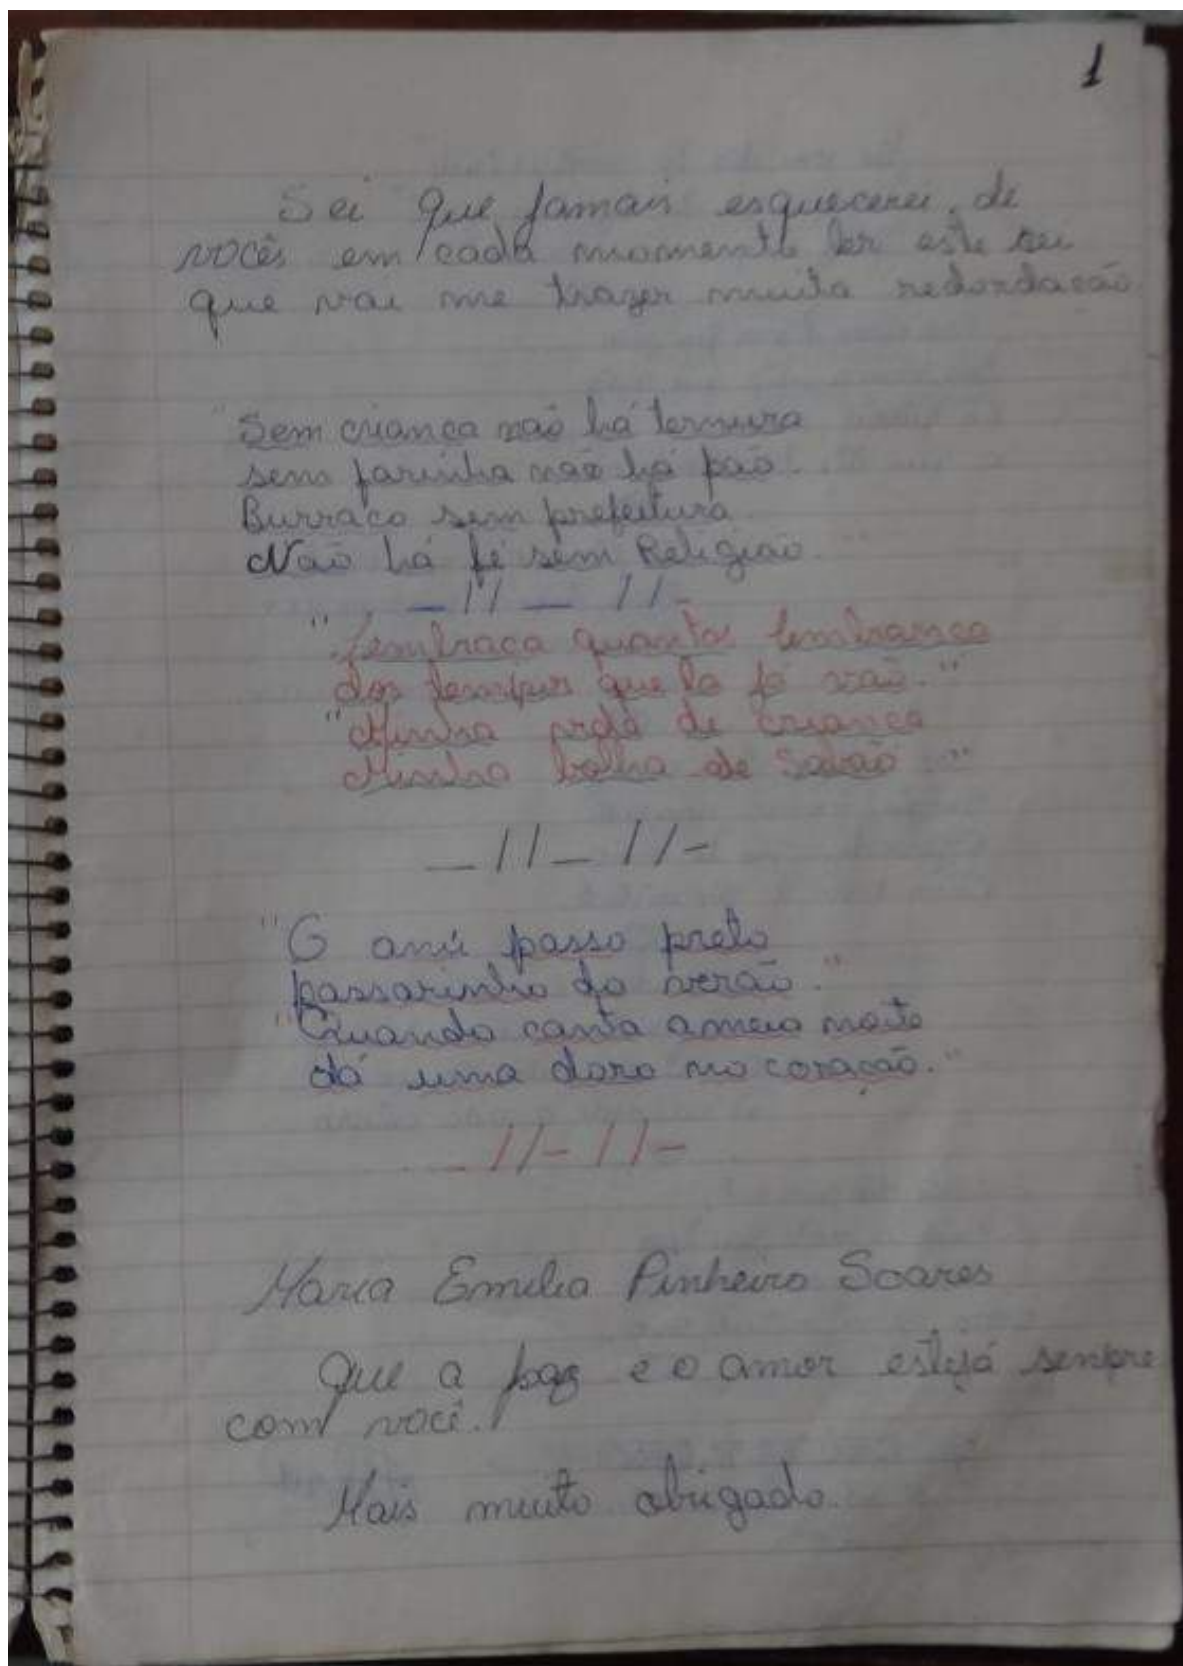 1
Sei que jamais esquecerei de
vocês em cada momento ler este sei
que vai me trazer muita redordacão
"Sem criança não há ternura
sem farinha não há pão.
Burraco sem prefeitura
Não há fé sem Religião."
_ // _ //-
"Lembraca quantas lembranca
dos tempos que la já vão."
"Minha de crianca
Minha bolha de Sabão."
_ // _ //-
"O anú passo preto
passarinho do verão."
"Quando canta a meia noite
dá uma doro no coração."
_ //- //-
Maria Emilia Pinheiro Soares
Que a paz e o amor estejá senpre
com você.
Mais muito obrigado.